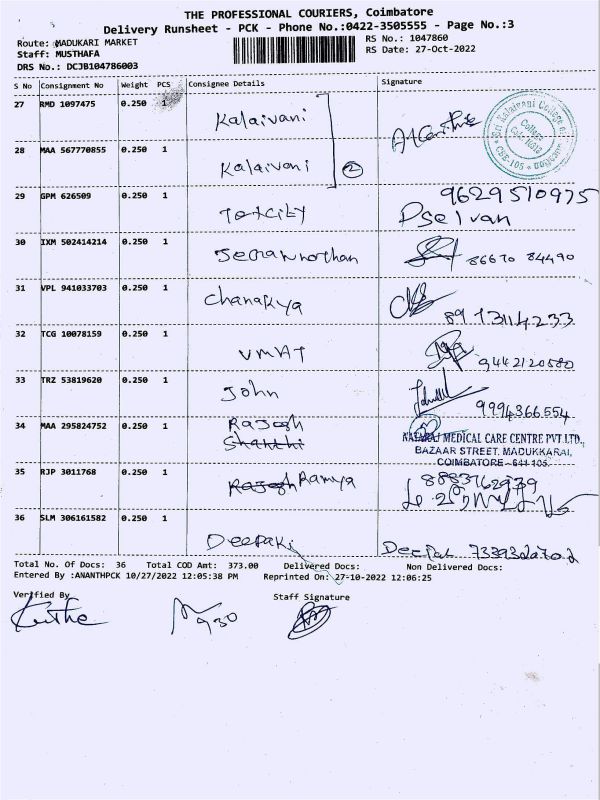 THE PROFESSIONAL COURIERS, Coimbatore
Delivery Runsheet - PCK - Phone No.:0422-3505555 - Page No.:3
Route: MADUKARI MARKET
RS No.: 1047860
Staff: MUSTHAFA
RS Date: 27-Oct-2022
DRS No.: DCJB104786003
S No Consignment No Weight PCS Consignee Details Signature
27 RMD 1097475 0.250 1 Kalaivani
28 MAA 567770855 0.250 1 Kalaivani 2
Sri Kalaivani College of
College
CBE-105
29 GPM 626509 0.250 1 9629510975
30 IXM 502414214 0.250 1 86670 84490
31 VPL 941033703 0.250 1 Chanakya
32 TCG 10078159 0.250 1 VMAT 9442120580
33 TRZ 53819620 0.250 1 John 9994366554
34 MAA 295824752 0.250 1 Rajesh
Shakthi
NATARAJ MEDICAL CARE CENTRE PVT.LTD.,
BAZAAR STREET, MADUKKARAI,
COIMBATORE - 641 105.
35 RJP 3011768 0.250 1 Rajesh Ramya 8883762939
36 SLM 306161582 0.250 1 Deepak Deepak
Total No. Of Docs: 36 Total COD Amt: 373.00 Delivered Docs: Non Delivered Docs:
Entered By :ANANTHPCK 10/27/2022 12:05:38 PM Reprinted On: 27-10-2022 12:06:25
Verified By
Staff Signature
930